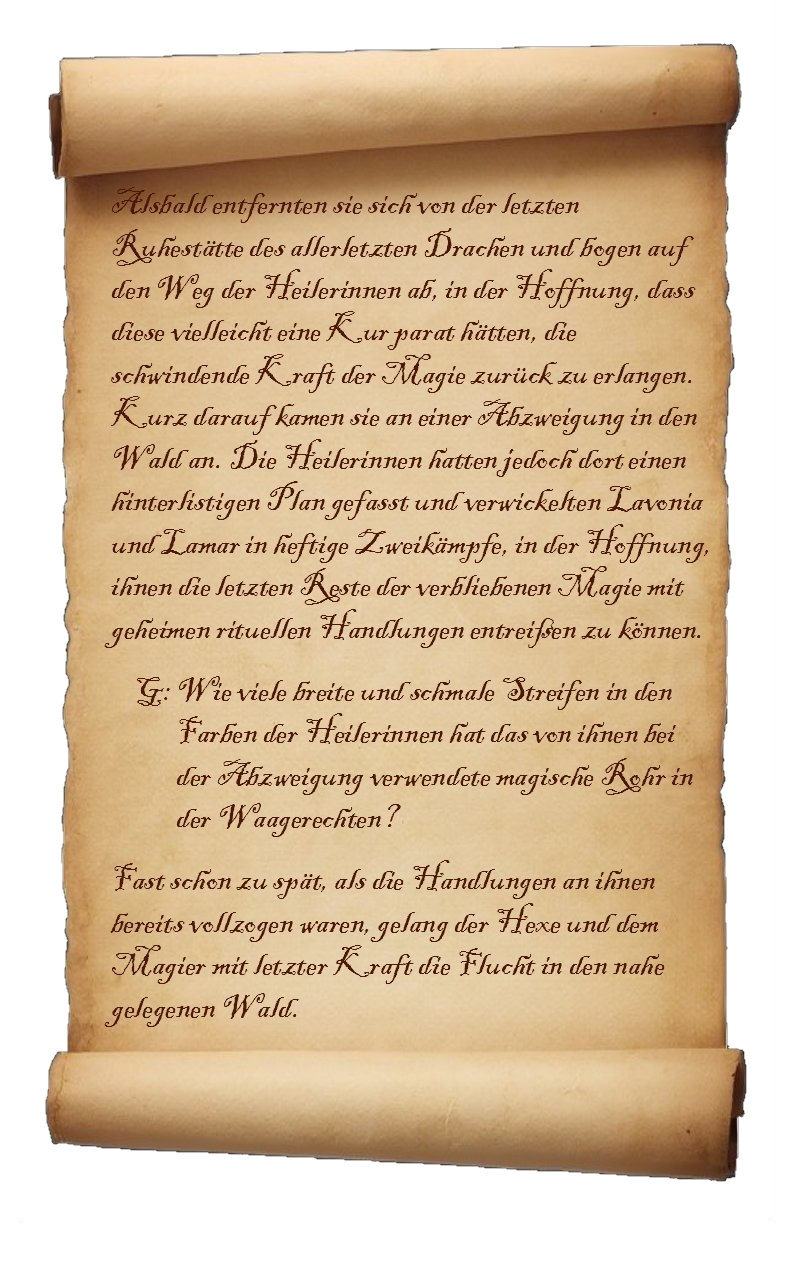 Alsbald entfernten sie sich von der letzten
Ruhestätte des allerletzten Drachen und bogen auf
den Weg der Heilerinnen ab, in der Hoffnung, dass
diese vielleicht eine Kur parat hätten, die
schwindende Kraft der Magie zurück zu erlangen.
Kurz darauf kamen sie an einer Abzweigung in den
Wald an. Die Heilerinnen hatten jedoch dort einen
hinterlistigen Plan gefasst und verwickelten Lavonia
und Lamar in heftige Zweikämpfe, in der Hoffnung,
ihnen die letzten Reste der verbliebenen Magie mit
geheimen rituellen Handlungen entreißen zu können.
G: Wie viele breite und schmale Streifen in den
Farben der Heilerinnen hat das von ihnen bei
der Abzweigung verwendete magische Rohr in
der Waagerechten?
Fast schon zu spät, als die Handlungen an ihnen
bereits vollzogen waren, gelang der Hexe und dem
Magier mit letzter Kraft die Flucht in den nahe
gelegenen Wald.